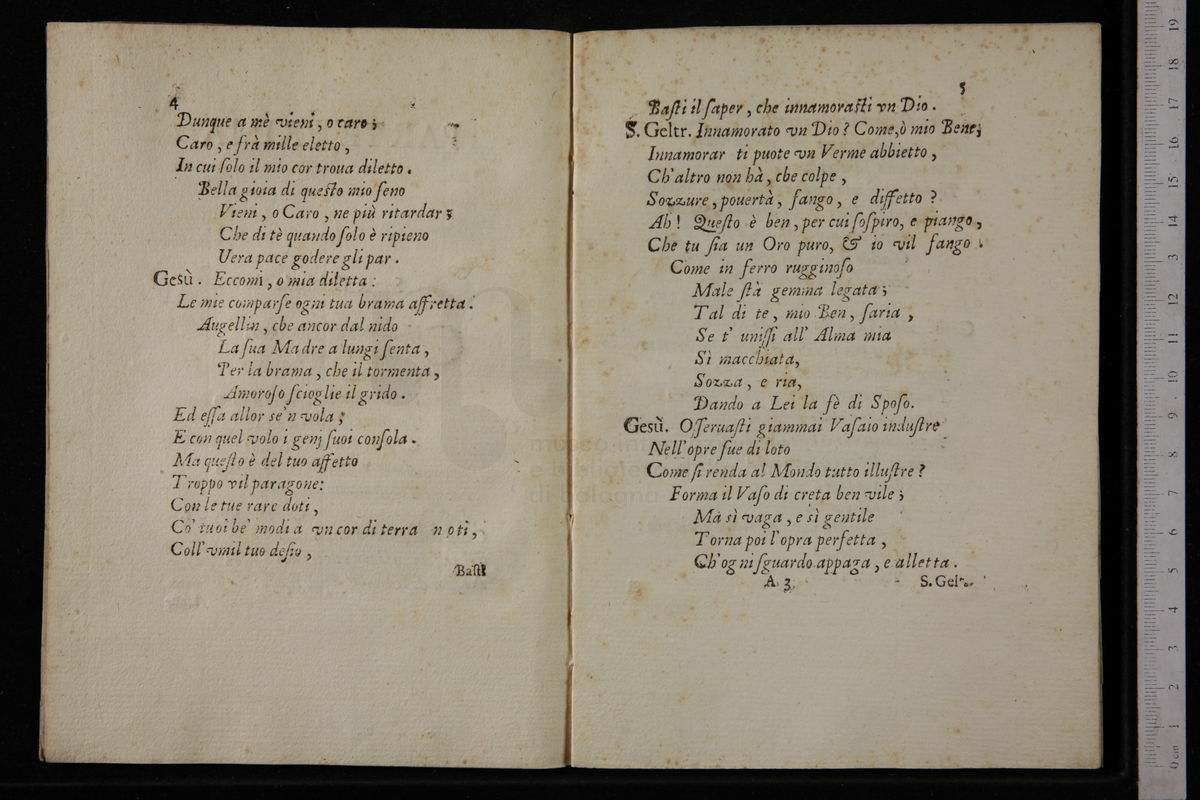 4
Dunque a mè vieni, o caro;
Caro, e frà mille eletto,
In cui ſolo il mio cor troua diletto.
Bella gioia di queſto mio ſeno
Vieni, o Caro, ne più ritardar;
Che di tè quando ſolo è ripieno
Vera pace godere gli par.
Gesù. Eccomi, o mia diletta:
Le mie comparſe ogni tua brama affretta.
Augellin, che ancor dal nido
La ſua Madre a lungi ſenta,
Per la brama, che il tormenta,
Amoroſo ſcioglie il grido.
Ed eſſa allor se'n vola;
E con quel volo i genj ſuoi conſola.
Ma queſto è del tuo affetto
Troppo vil paragone:
Con le tue rare doti,
Co' tuoi be' modi a vn cor di terra noti,
Coll' vmil tuo deſio,
Baſti
5
Baſti il ſaper, che innamoraſti vn Dio.
S. Geltr. Innamorato vn Dio? Come, ò mio Bene;
Innamorar ti puote vn Verme abbietto,
Ch' altro non hà, che colpe,
Sozzure, pouertà, fango, e diffetto?
Ah! Queſto è ben, per cui ſoſpiro, e piango,
Che tu ſia un Oro puro, & io vil fango.
Come in ferro rugginoſo
Male ſtà gemma legata;
Tal di te, mio Ben, ſaria,
Se t' uniſſi all' Alma mia
Sì macchiata,
Sozza, e ria,
Dando a Lei la fè di Spoſo.
Gesù. Oſſeruaſti giammai Vaſaio induſtre
Nell' opre ſue di loto
Come ſi renda al Mondo tutto illuſtre?
Forma il Vaſo di creta ben vile;
Mà sì vaga, e sì gentile
Torna poi l'opra perfetta,
Ch' ogni ſguardo appaga, e alletta.
A 3
S. Gel